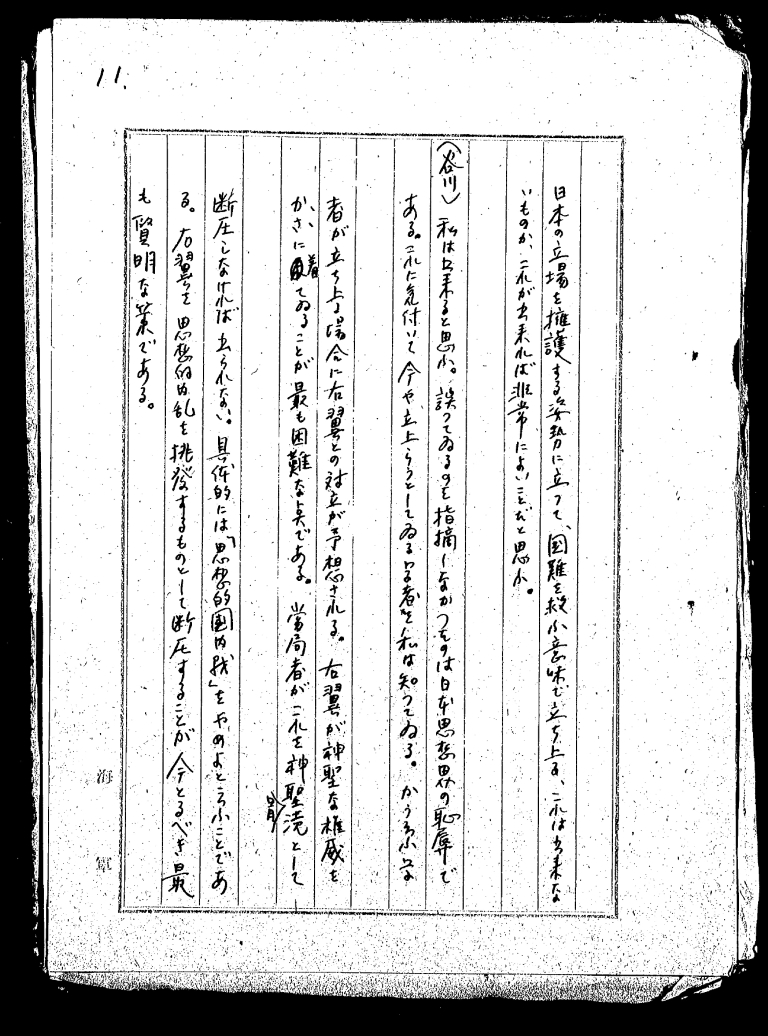 11.
日本の立場を擁護する姿勢に立つて、国難を救ふ意味で立ち上る、これは出来な
いものか、これが出来れば非常によいことだと思ふ。
(谷川) 私は出来ると思ふ。誤つてゐるのを指摘しなかつたのは日本思想界の恥辱で
ある。これに気付いて今や立上らうとしてゐる学者を私は知つてゐる。かういふ学
者が立ち上る場合に右翼との対立が予想される。右翼が神聖な権威を
かさに着てゐることが最も困難な点である。当局者がこれを神聖冒瀆として
断圧しなければ出られない。具体的には「思想的国内戦」をやめよといふことであ
る。右翼を思想的内乱を挑発するものとして断圧することが今とるべき最
も賢明な策である。
海軍